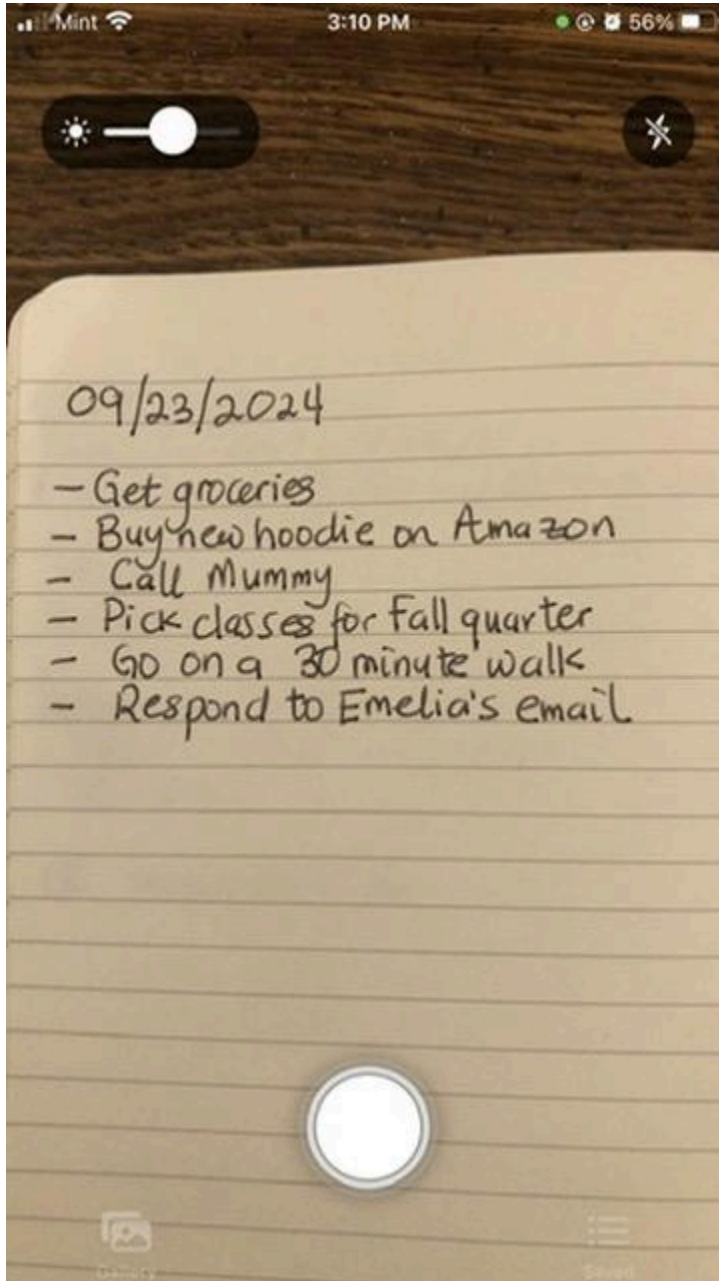 Mint 3:10 PM 56%
09/23/2024
- Get groceries
- Buy new hoodie on Amazon
- Call Mummy
- Pick classes for Fall quarter
- Go on a 30 minute walk
- Respond to Emelia's email
Gallery Saved